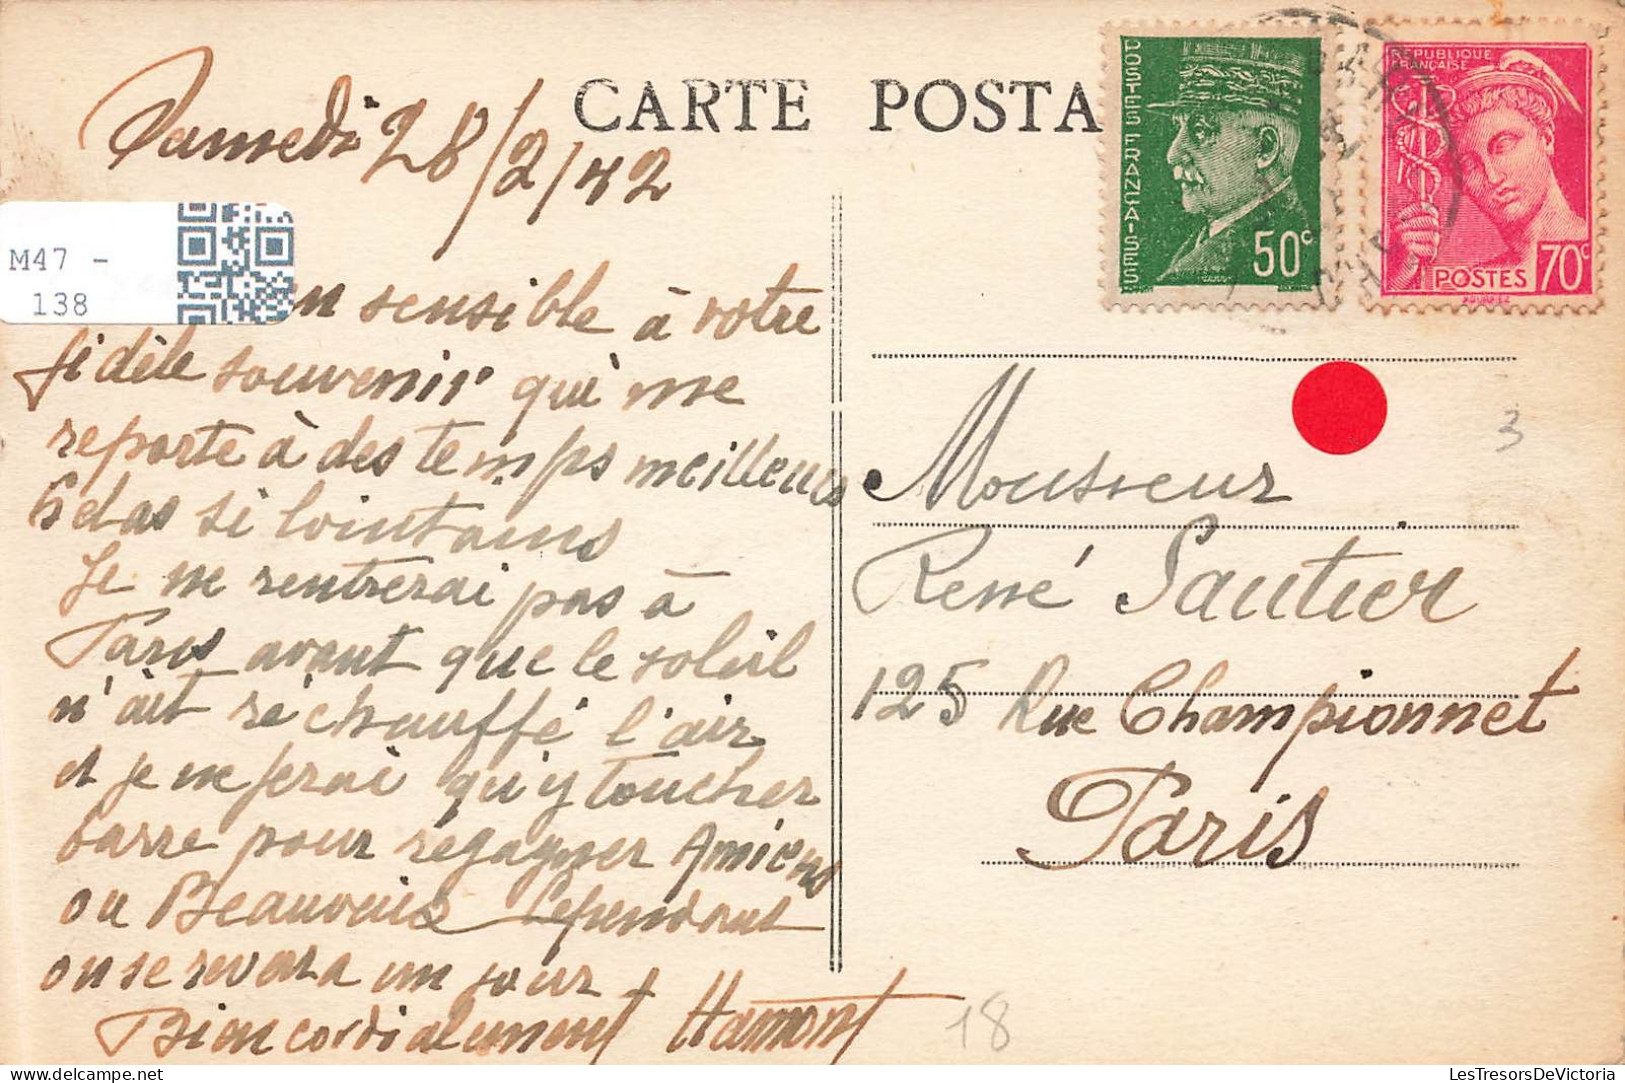 CARTE POSTA
POSTES FRANÇAISES
50c
REPUBLIQUE
FRANÇAISE
POSTES 70c
Samedi 28/2/42
M47 -
138
en sensible à votre
fidèle souvenir qui me
reporte à des temps meilleurs
hélas si lointains
Je ne rentrerai pas à
Paris avant que le soleil
n'ait réchauffé l'air
et je ne ferai qu'y toucher
barre pour regagner Amiens
ou Beauvais Cependant
on se reverra un jour
Bien cordialement Hamont
Monsieur
René Sautier
125 Rue Championnet
Paris
3
18
LesTresorsDeVictoria